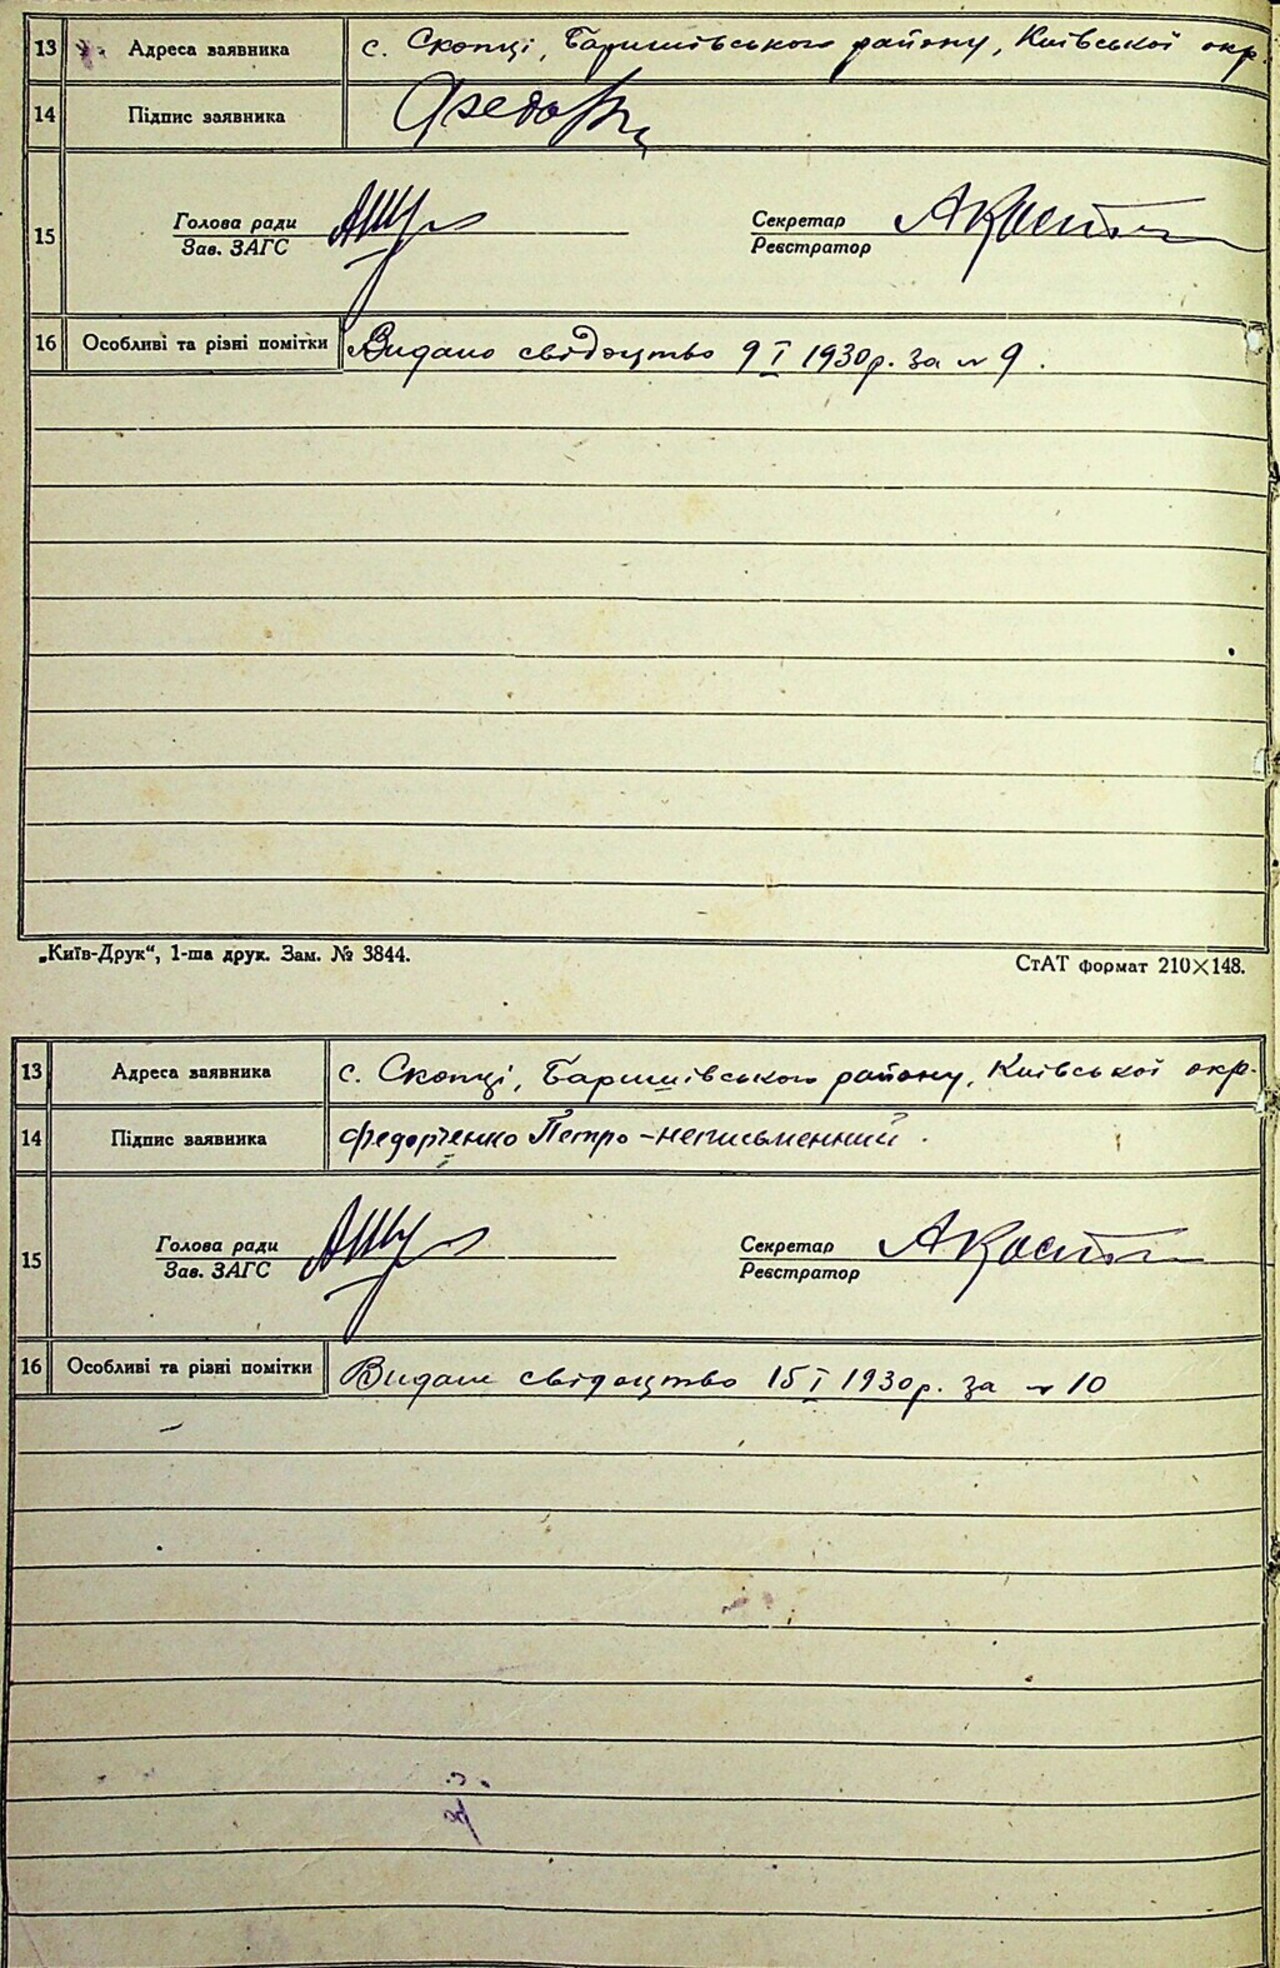 13 Адреса заявника с. Скопці, Баришівського району, Київської окр.
14 Підпис заявника
15 Голова ради Секретар
Зав. ЗАГС Реєстратор
16 Особливі та різні помітки Видано свідоцтво 9 I 1930р. за № 9.
„Київ-Друк“, 1-ша друк. Зам. № 3844. СтАТ формат 210×148.
13 Адреса заявника с. Скопці, Баришівського району, Київської окр.
14 Підпис заявника Федорченко Петро - неписьменний.
15 Голова ради Секретар
Зав. ЗАГС Реєстратор
16 Особливі та різні помітки Видане свідоцтво 15 I 1930р. за № 10